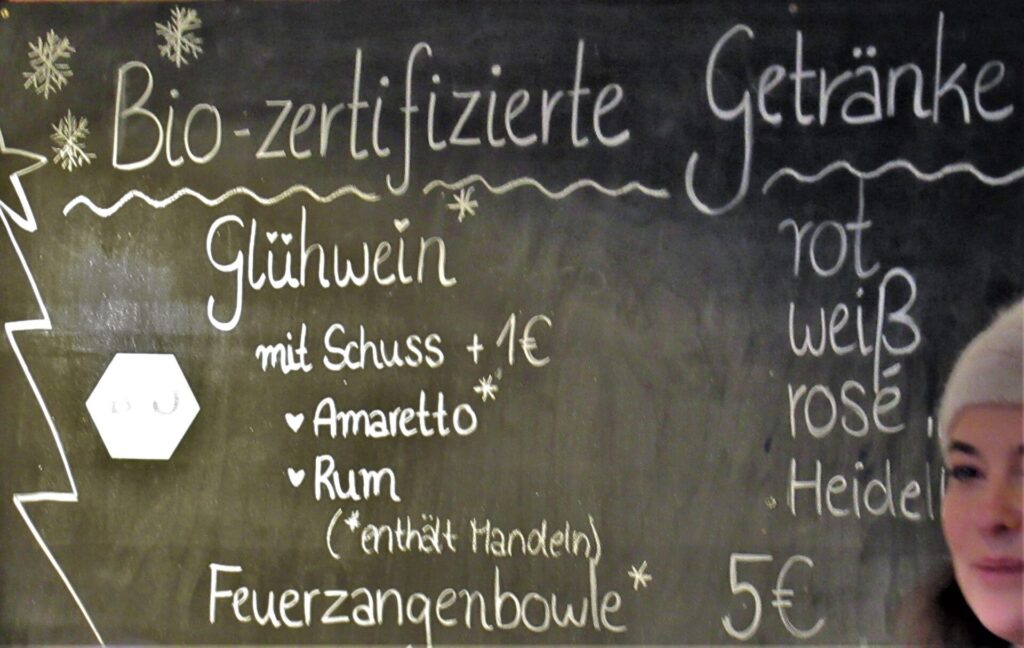 Bio-zertifizierte Getränke
Glühwein* rot
weiß
mit Schuss + 1€
♥ Amaretto* rosé
♥ Rum Heidel
(*enthält Mandeln)
Feuerzangenbowle* 5€